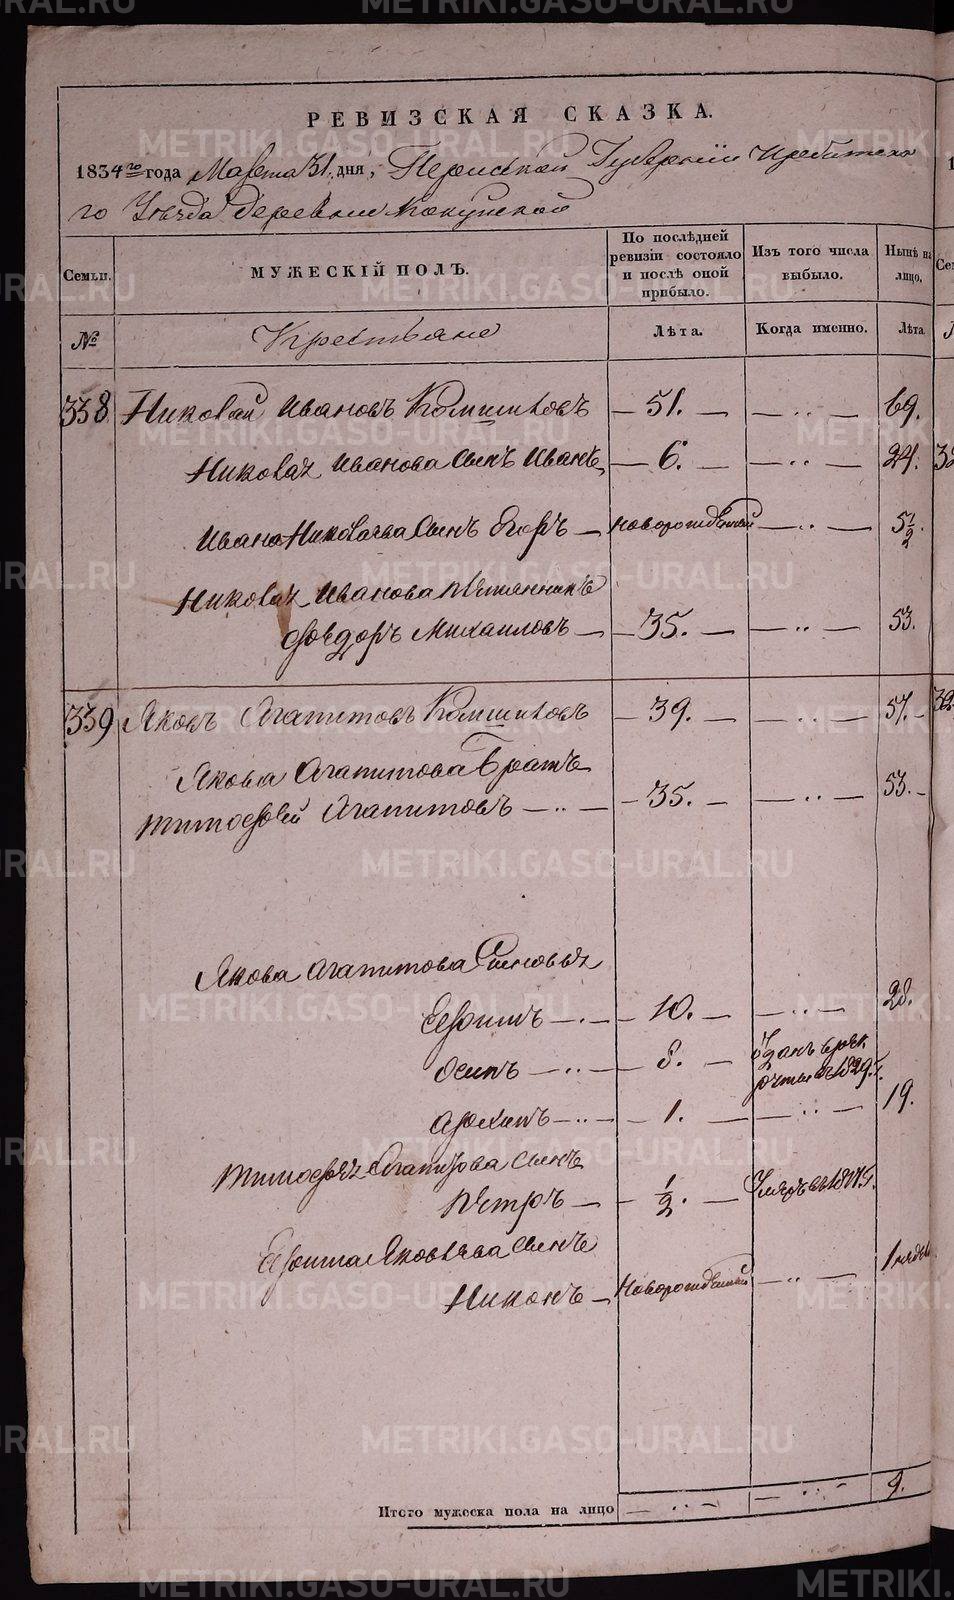 РЕВИЗСКАЯ СКАЗКА.
1834го года Марта 31. дня, Пермской Губернiи Ирбитска
го Уѣзда деревни Кокуйской
Семьи.
МУЖЕСКIЙ ПОЛЪ.
По послѣдней ревизiи состояло и послѣ оной прибыло.
Изъ того числа выбыло.
Нынѣ на лицо.
№
Крестьяне
Лѣта.
Когда именно.
Лѣта.
338 Николай Ивановъ Комшиковъ — 51. — — .. — 69.
Николая Иванова Сынъ Иванъ — 6. — — .. — 24.
Ивана Николаева Сынъ Егоръ — новорожденный — .. — 5 1/2
Николая Иванова племянникъ
Ѳедоръ Михаиловъ — — 35. — — .. — 53.
339 Яковъ Агапитовъ Комшиковъ — 39. — — .. — 57. —
Якова Агапитова Братъ
Тимофей Агапитовъ — .. — — 35. — — .. — 53. —
Якова Агапитова Сыновья
Ефимъ — . — — 10. — — .. — 28.
Осипъ — .. — — 8. — Отданъ в рек
руты въ 1829 г.
Архипъ — .. — — 1. — — .. — 19.
Тимофея Агапитова сынъ
Петръ — — 1/2. — Умеръ въ 1817 г.
Ефима Яковлева сынъ
Никонъ — Новорожденный — .. —
Итого мужеска пола на лицо — .. — — .. — 9.
METRIKI.GASO-URAL.RU